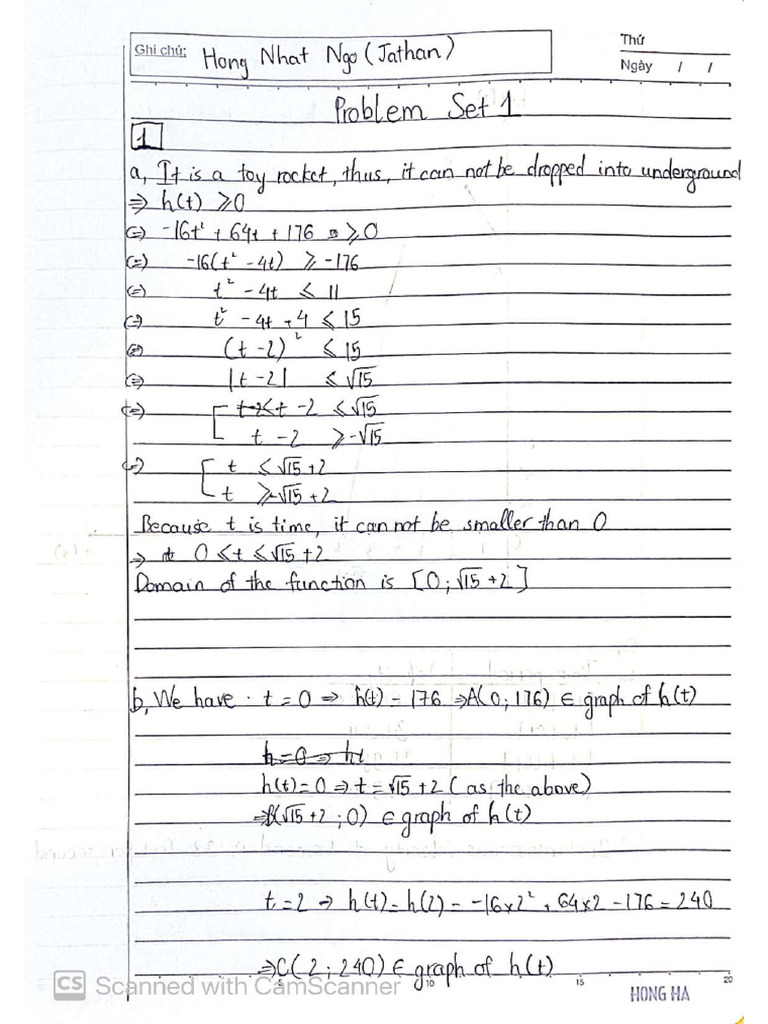 Ghi chú: Hong Nhat Ngo (Jathan)
Thứ
Ngày / /
Problem Set 1
1
a, It is a toy rocket, thus, it can not be dropped into underground
⇒ h(t) ⩾ 0
⇔ -16t² + 64t + 176 ⩾ 0
⇔ -16(t² - 4t) ⩾ -176
⇔ t² - 4t ⩽ 11
⇔ t² - 4t + 4 ⩽ 15
⇔ (t - 2)² ⩽ 15
⇔ |t - 2| ⩽ √15
⇔ [ t - 2 ⩽ √15
t - 2 ⩾ -√15
⇔ [ t ⩽ √15 + 2
t ⩾ -√15 + 2
Because t is time, it can not be smaller than 0
⇒ 0 ⩽ t ⩽ √15 + 2
Domain of the function is [0; √15 + 2]
b, We have : t = 0 ⇒ h(t) = 176 ⇒ A(0; 176) ∈ graph of h(t)
h=0 ⇒ ht
h(t) = 0 ⇒ t = √15 + 2 (as the above)
⇒ B(√15 + 2; 0) ∈ graph of h(t)
t = 2 ⇒ h(t) = h(2) = -16×2² + 64×2 - 176 = 240
⇒ C(2; 240) ∈ graph of h(t)
CS Scanned with CamScanner
5 10 15 20
HONG HA